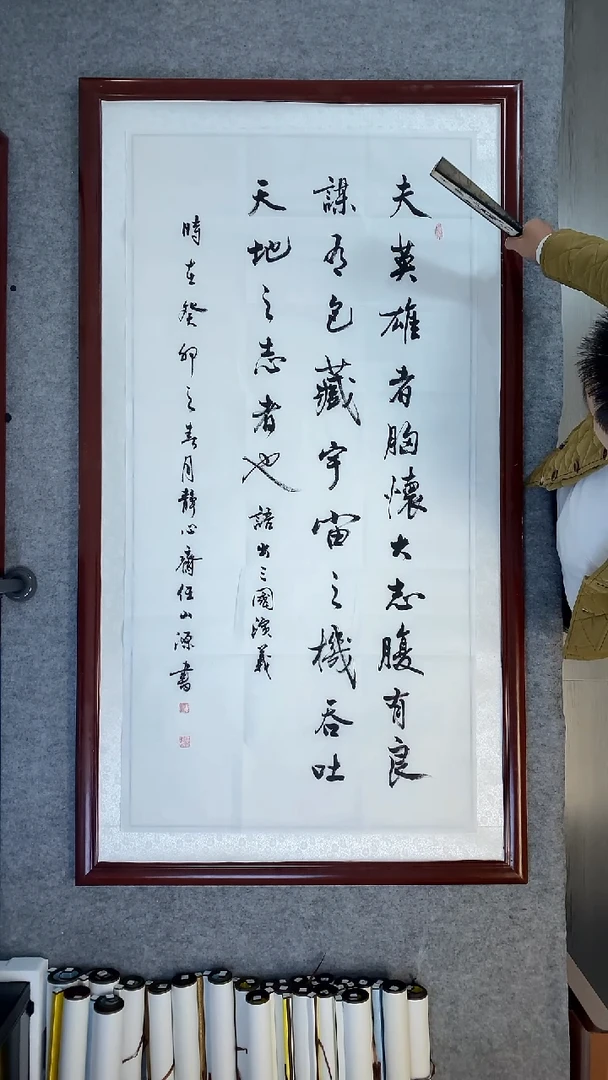 夫英雄者胸懷大志腹有良
謀有包藏宇宙之機吞吐
天地之志者也 語出三國演義
時在癸卯之春月靜心齋任山源書